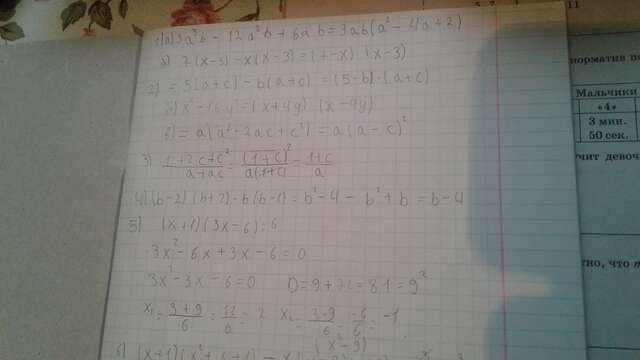 1) a) 3a³b - 12a²b + 6ab = 3ab(a² - 4a + 2)
б) 7(x-3) - x(x-3) = (7-x) (x-3)
2) = 5(a+c) - b(a+c) = (5-b)·(a+c)
б) x² - 16y² = (x+4y) (x-4y)
в) = a(a² - 2ac + c²) = a(a-c)²
3) 1+2c+c² / a+ac = (1+c)² / a(1+c) = 1+c / a
4) (b-2)(b+2) - b(b-1) = b² - 4 - b² + b = b-4
5) (x+1)(3x-6) = 6
3x² - 6x + 3x - 6 = 0
3x² - 3x - 6 = 0 D = 9 + 72 = 81 = 9²
x₁ = 3+9 / 6 = 12 / 6 = 2 x₂ = 3-9 / 6 = -6 / 6 = -1
(x-9)
11
норматив
Мальчики
«4»
3 мин.
50 сек.
девоч
тно, что